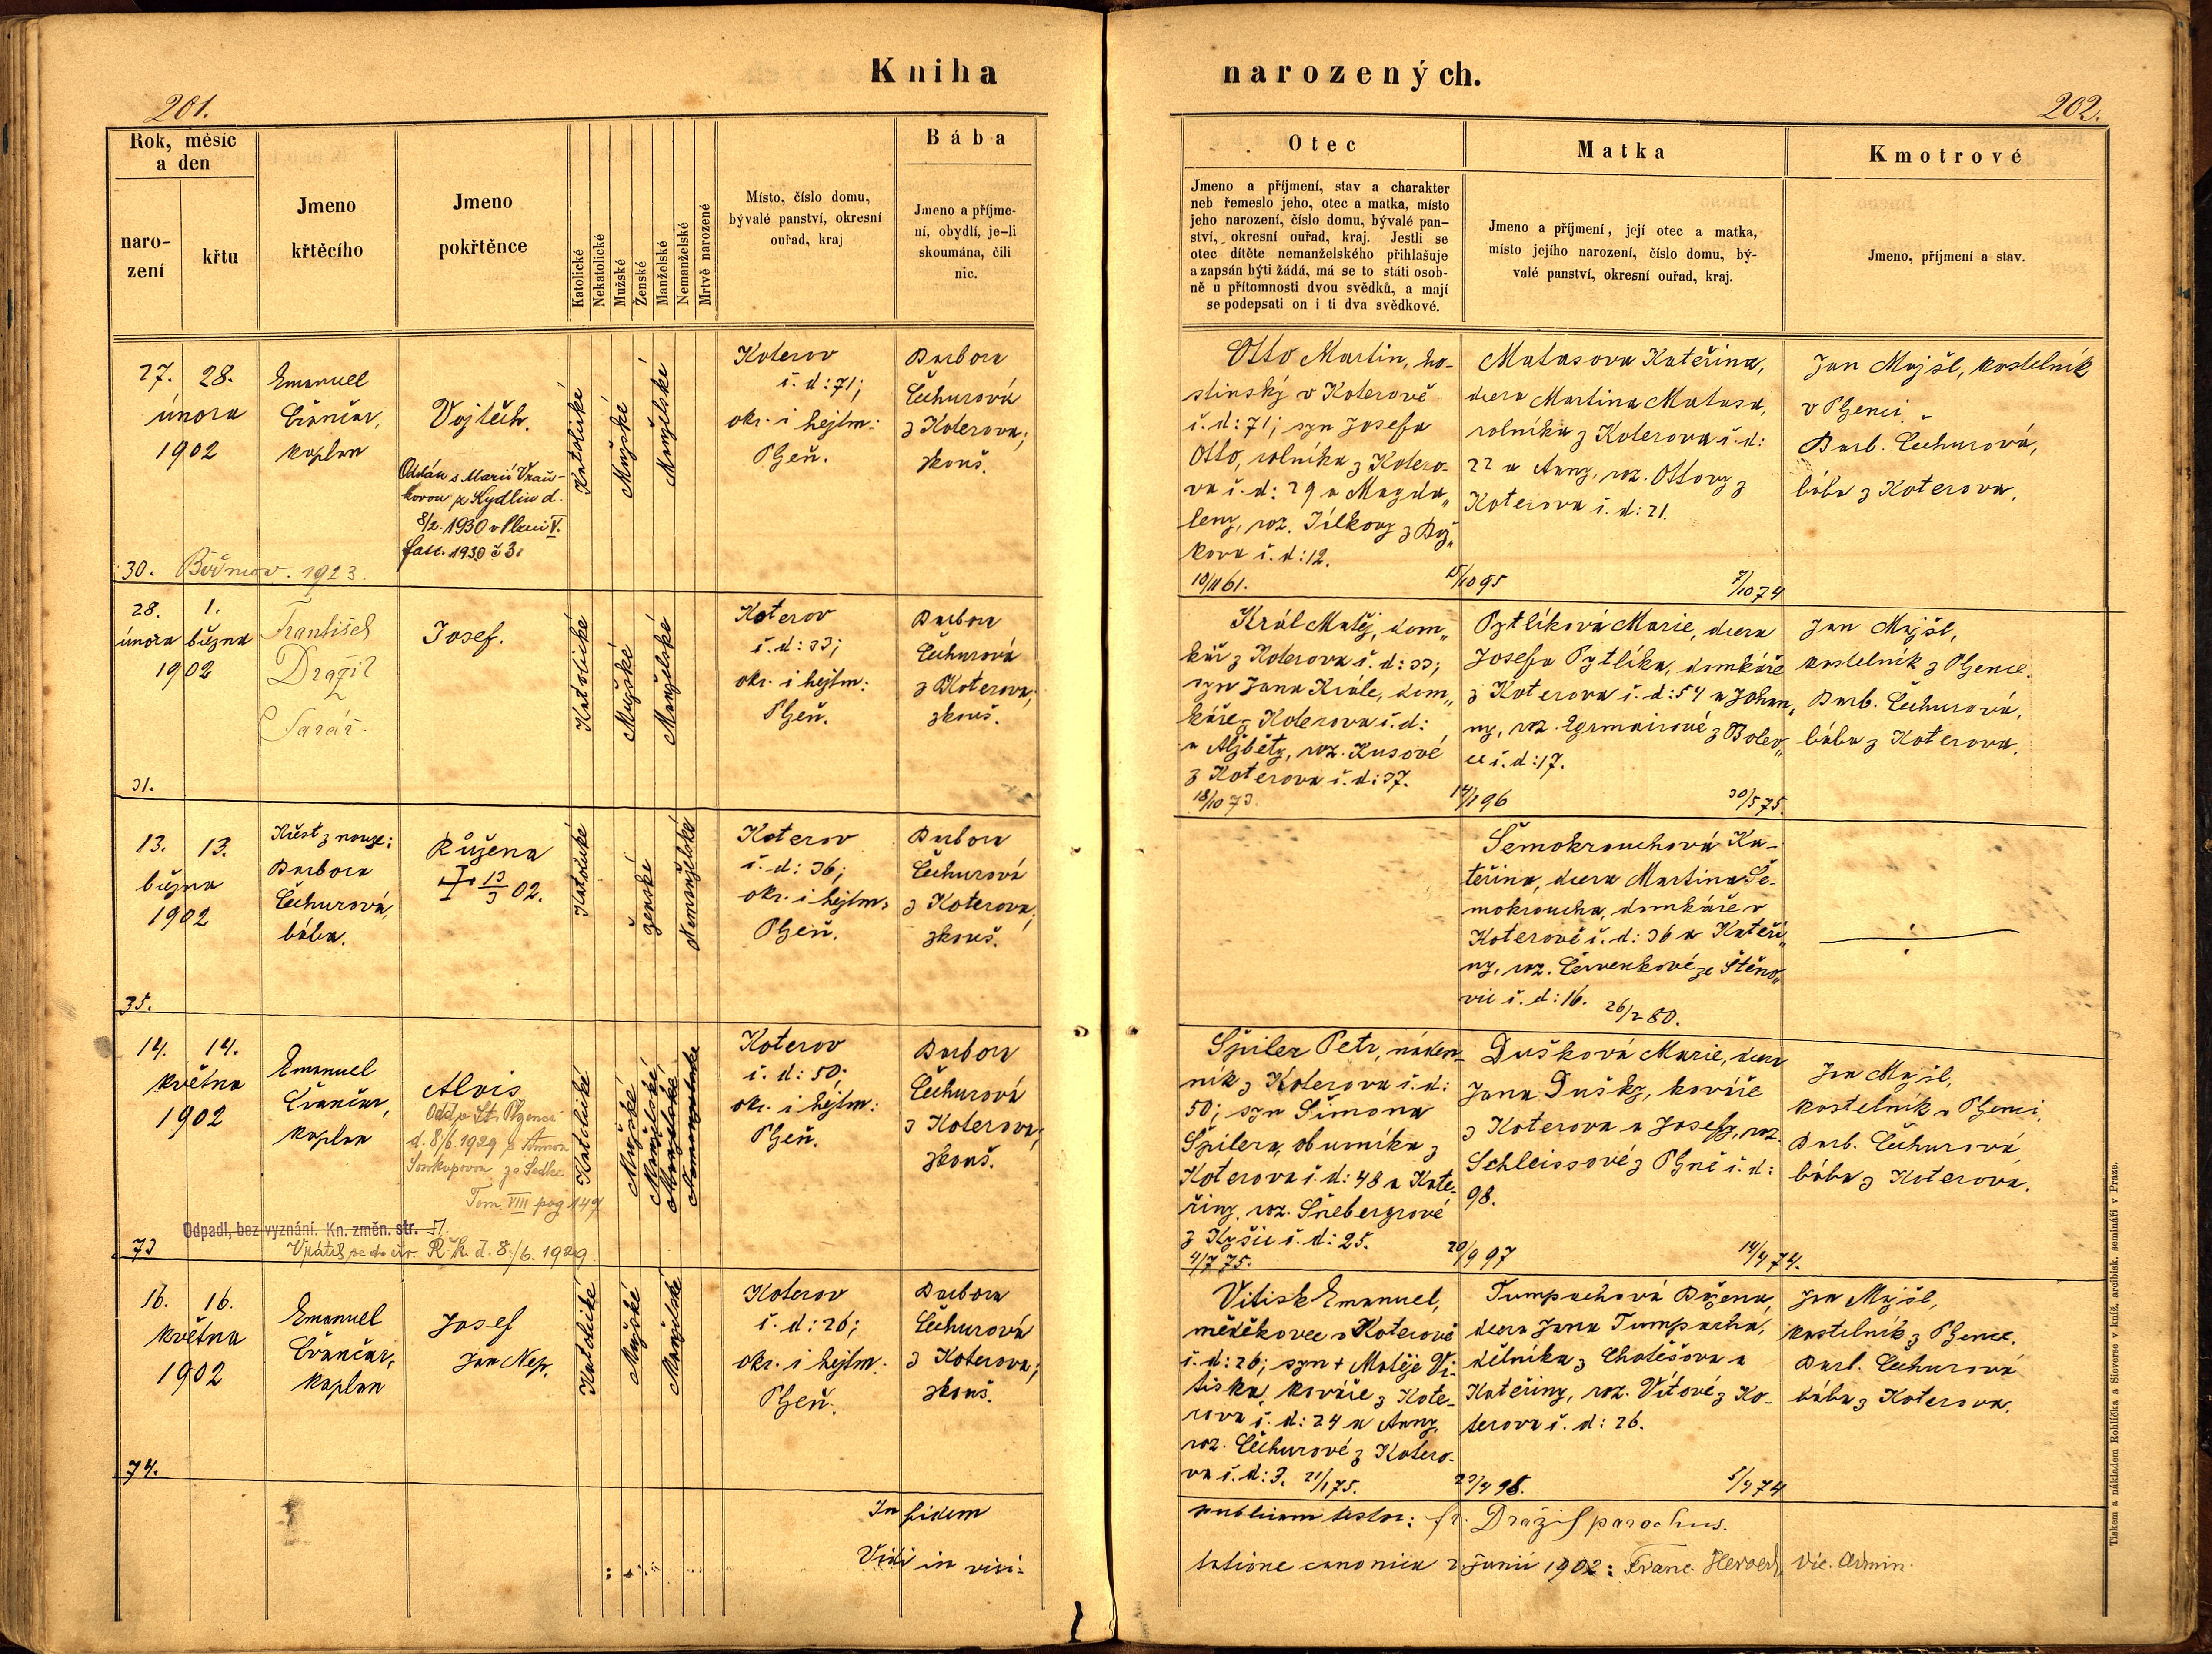 Kniha
narozených.
201.
202.
Rok, měsíc
a den
naro-
zení
křtu
Jmeno
křtěcího
Jmeno
pokřtěnce
Katolické
Nekatolické
Mužské
Ženské
Manželské
Nemanželské
Mrtvě narozené
Místo, číslo domu,
bývalé panství, okresní
ouřad, kraj
Bába
Jmeno a příjme-
ní, obydlí, je-li
skoumána, čili
nic.
Otec
Jmeno a příjmení, stav a charakter
neb řemeslo jeho, otec a matka, místo
jeho narození, číslo domu, bývalé pan-
ství, okresní ouřad, kraj. Jestli se
otec dítěte nemanželského přihlašuje
a zapsán býti žádá, má se to státi osob-
ně u přítomnosti dvou svědků, a mají
se podepsati on i ti dva svědkové.
Matka
Jmeno a příjmení, její otec a matka,
místo jejího narození, číslo domu, bý-
valé panství, okresní ouřad, kraj.
Kmotrové
Jmeno, příjmení a stav.
27. 28.
února
1902
30.
1923.
Emanuel
kaplan
Vojtěch.
Oddán s Marií
8/2. 1930 v Plzni V.
fasc. 1930 č 3.
Katolické
Mužské
Manželské
Koterov
č. d: 71;
okr. i hejtm:
Plzeň.
Barbora
Čechurová
z Koterova;
zkouš.
Otto Martin, ho-
stinský v Koterově
č. d: 71; syn Josefa
Otto, rolníka z Kotero-
va č. d: 29 a Magda„
leny, roz. Jílkovy z Bož„
kova č. d: 12.
10/11 61.
15/10 95
Matasova Kateřina,
dcera Martina Matasa,
rolníka z Koterova č. d:
22 a Anny, roz. Ottovy z
Koterova č. d: 21.
7/10 74
Jan Majšl, kostelník
v Plzenci.
Barb. Čechurová,
bába z Koterova.
28. 1.
února března
1902
31.
František
Dražil
farář.
Josef.
Katolické
Mužské
Manželské
Koterov
č. d: 33;
okr. i hejtm:
Plzeň.
Barbora
Čechurová
z Koterova;
zkouš.
Král Matěj, dom„
kář z Koterova č. d: 33;
syn Jana Krále, dom„
káře z Koterova č. d:
a Alžběty, roz. Kusové
z Koterova č. d: 37.
18/10 73.
14/1 96
Pytlíková Marie, dcera
Josefa Pytlíka, domkáře
z Koterova č. d: 54 a Johan„
ny, roz. Egrmairové z Bolev„
ce č. d: 17.
30/5 75.
Jan Majšl,
kostelník z Plzence.
Barb. Čechurová,
bába z Koterova.
13. 13.
března
1902
35.
Křest z nouze:
Barbora
Čechurová,
bába.
Růžena
13/3 02.
Katolické
ženské
Nemanželské
Koterov
č. d: 36;
okr. i hejtm:
Plzeň.
Barbora
Čechurová
z Koterova;
zkouš.
Šemokrouchová Ka-
teřina, dcera Martina Še-
mokroucha, domkáře v
Koterově č. d: 36 a Kateři„
ny, roz. Červenkové ze Štěno„
vic č. d: 16. 26/2 80.
14. 14.
května
1902
73
Emanuel
kaplan
Alois
Odd. v St. Plzenci
d. 8/6. 1929 s Annou
ze Sedlce
Tom. VIII pag 149
Odpadl, bez vyznání. Kn. změn. str. 51.
Vrátil se do círk. Ř. k. d. 8./6. 1929.
Katolické
Mužské
Manželské
Manželské
Koterov
č. d: 50;
okr. i hejtm:
Plzeň.
Barbora
Čechurová
z Koterova;
zkouš.
Špiler Petr, náden-
ník z Koterova č. d:
50; syn Šimona
Špilera, obuvníka z
Koterova č. d: 48 a Kate-
řiny, roz. Šnebergrové
z Kyšic č. d: 25.
4/7 75.
20/9 97
Dušková Marie, dcera
Jana Dušky, kováře
z Koterova a Josefy, roz.
Schleissové z Plzně č. d:
98.
14/4 74.
Jan Majšl,
kostelník v Plzenci.
Barb. Čechurová
bába z Koterova.
16. 16.
května
1902
74.
Emanuel
kaplan
Josef
Jan Nep.
Katolické
Mužské
Manželské
Koterov
č. d: 26;
okr. i hejtm:
Plzeň.
Barbora
Čechurová
z Koterova;
zkouš.
Vitisk Emanuel,
měděkovec v Koterově
č. d: 26; syn + Matěje Vi-
tiska, kováře z Kote-
rova č. d: 24 a Anny,
roz. Čechurové z Kotero-
va č. d: 3. 21/1 75.
23/4 98.
Tumpachová Božena,
dcera Jana Tumpacha,
dělníka z Chotěšova a
Kateřiny, roz. Vítové z Ko-
terova č. d: 26.
5/4 74
Jan Majšl,
kostelník z Plzence.
Barb. Čechurová
bába z Koterova.
In fidem
publicam testor: fr. Dražil parochus.
Vidi in visi-
tatione canonica 2 Junii 1902: Franc. vic. Admin.
Tiskem a nákladem Rohlíčka a Sieverse v kníž. arcibisk. semináři v Praze.